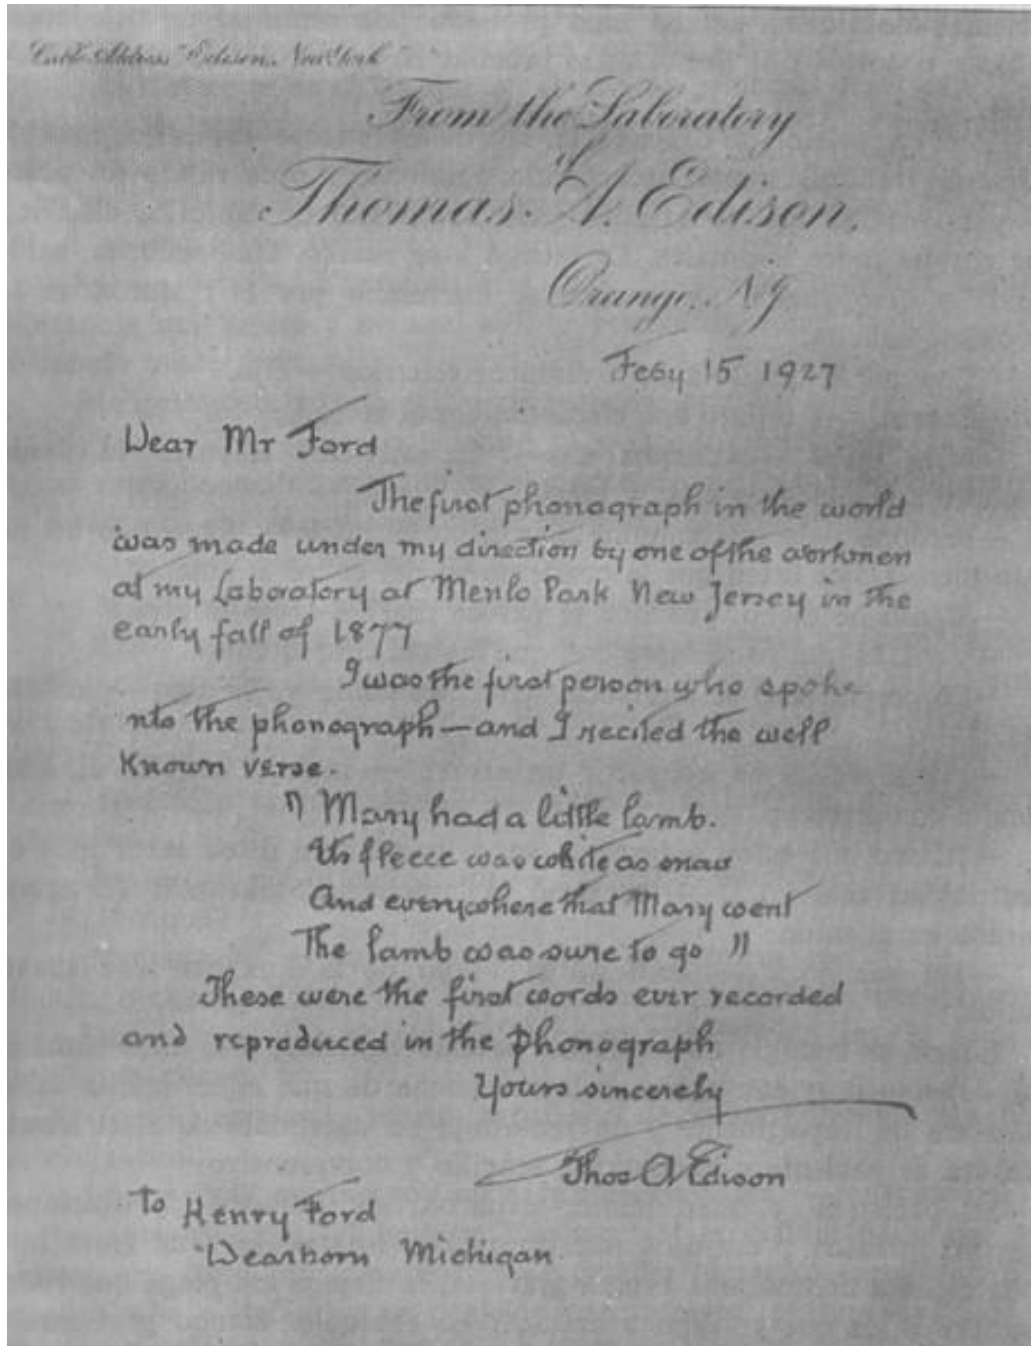 Cable Address "Edison, New York"
From the Laboratory
of
Thomas A. Edison.
Orange, N.J.
Feby 15 1927
Dear Mr Ford
The first phonograph in the world
was made under my direction by one of the workmen
at my Laboratory at Menlo Park New Jersey in the
early fall of 1877
I was the first person who spoke
nto the phonograph—and I recited the well
Known verse.
" Mary had a little lamb.
Its fleece was white as snow
And everywhere that Mary went
The lamb was sure to go "
These were the first words ever recorded
and reproduced in the phonograph
Yours sincerely
Thos A Edison
To Henry Ford
Dearborn Michigan.